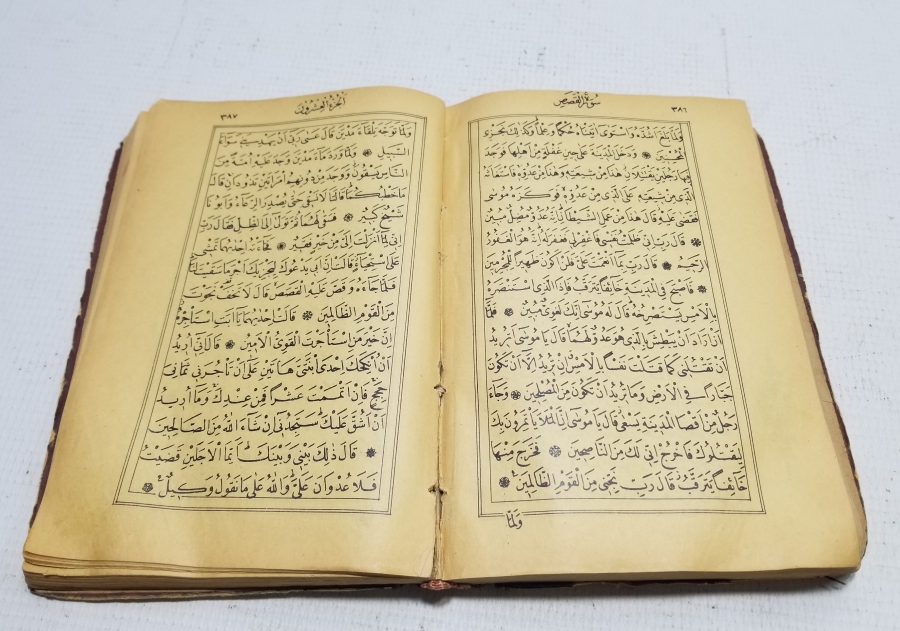 سورة القصص
٣٨٦
وَلَمَّا بَلَغَ اَشُدَّهُ وَاسْتَوٰى اٰتَيْنَاهُ حُكْمًا وَعِلْمًا وَكَذٰلِكَ نَجْزِى
الْمُحْسِنِينَ ۞ وَدَخَلَ الْمَدِينَةَ عَلٰى حِينِ غَفْلَةٍ مِنْ اَهْلِهَا فَوَجَدَ
فِيهَا رَجُلَيْنِ يَقْتَتِلَانِ هٰذَا مِنْ شِيعَتِهِ وَهٰذَا مِنْ عَدُوِّهِ فَاسْتَغَاثَهُ
الَّذِى مِنْ شِيعَتِهِ عَلَى الَّذِى مِنْ عَدُوِّهِ فَوَكَزَهُ مُوسٰى
فَقَضٰى عَلَيْهِ قَالَ هٰذَا مِنْ عَمَلِ الشَّيْطَانِ اِنَّهُ عَدُوٌّ مُضِلٌّ مُبِينٌ
۞ قَالَ رَبِّ اِنِّى ظَلَمْتُ نَفْسِى فَاغْفِرْلِى فَغَفَرَ لَهُ اِنَّهُ هُوَ الْغَفُورُ
الرَّحِيمُ ۞ قَالَ رَبِّ بِمَا اَنْعَمْتَ عَلَىَّ فَلَنْ اَكُونَ ظَهِيرًا لِلْمُجْرِمِينَ
۞ فَاَصْبَحَ فِى الْمَدِينَةِ خَائِفًا يَتَرَقَّبُ فَاِذَا الَّذِى اسْتَنْصَرَهُ
بِالْاَمْسِ يَسْتَصْرِخُهُ قَالَ لَهُ مُوسٰى اِنَّكَ لَغَوِىٌّ مُبِينٌ ۞ فَلَمَّا
اَنْ اَرَادَ اَنْ يَبْطِشَ بِالَّذِى هُوَ عَدُوٌّ لَهُمَا قَالَ يَا مُوسٰى اَتُرِيدُ
اَنْ تَقْتُلَنِى كَمَا قَتَلْتَ نَفْسًا بِالْاَمْسِ اِنْ تُرِيدُ اِلَّا اَنْ تَكُونَ
جَبَّارًا فِى الْاَرْضِ وَمَا تُرِيدُ اَنْ تَكُونَ مِنَ الْمُصْلِحِينَ ۞ وَجَاءَ
رَجُلٌ مِنْ اَقْصَا الْمَدِينَةِ يَسْعٰى قَالَ يَا مُوسٰى اِنَّ الْمَلَاَ يَاْتَمِرُونَ بِكَ
لِيَقْتُلُوكَ فَاخْرُجْ اِنِّى لَكَ مِنَ النَّاصِحِينَ ۞ فَخَرَجَ مِنْهَا
خَائِفًا يَتَرَقَّبُ قَالَ رَبِّ نَجِّنِى مِنَ الْقَوْمِ الظَّالِمِينَ ۞
وَلَمَّا
الجزء العشرون
٣٨٧
وَلَمَّا تَوَجَّهَ تِلْقَاءَ مَدْيَنَ قَالَ عَسٰى رَبِّى اَنْ يَهْدِيَنِى سَوَاءَ
السَّبِيلِ ۞ وَلَمَّا وَرَدَ مَاءَ مَدْيَنَ وَجَدَ عَلَيْهِ اُمَّةً مِنَ
النَّاسِ يَسْقُونَ وَوَجَدَ مِنْ دُونِهِمُ امْرَاَتَيْنِ تَذُودَانِ قَالَ
مَا خَطْبُكُمَا قَالَتَا لَا نَسْقِى حَتّٰى يُصْدِرَ الرِّعَاءُ وَاَبُونَا
شَيْخٌ كَبِيرٌ ۞ فَسَقٰى لَهُمَا ثُمَّ تَوَلّٰى اِلَى الظِّلِّ فَقَالَ رَبِّ
اِنِّى لِمَا اَنْزَلْتَ اِلَىَّ مِنْ خَيْرٍ فَقِيرٌ ۞ فَجَاءَتْهُ اِحْدٰيهُمَا تَمْشِى
عَلَى اسْتِحْيَاءٍ قَالَتْ اِنَّ اَبِى يَدْعُوكَ لِيَجْزِيَكَ اَجْرَ مَا سَقَيْتَ لَنَا
فَلَمَّا جَاءَهُ وَقَصَّ عَلَيْهِ الْقَصَصَ قَالَ لَا تَخَفْ نَجَوْتَ
مِنَ الْقَوْمِ الظَّالِمِينَ ۞ قَالَتْ اِحْدٰيهُمَا يَا اَبَتِ اسْتَاْجِرْهُ
اِنَّ خَيْرَ مَنِ اسْتَاْجَرْتَ الْقَوِىُّ الْاَمِينُ ۞ قَالَ اِنِّى اُرِيدُ
اَنْ اُنْكِحَكَ اِحْدَى ابْنَتَىَّ هَاتَيْنِ عَلٰى اَنْ تَاْجُرَنِى ثَمَانِىَ
حِجَجٍ فَاِنْ اَتْمَمْتَ عَشْرًا فَمِنْ عِنْدِكَ وَمَا اُرِيدُ
اَنْ اَشُقَّ عَلَيْكَ سَتَجِدُنِى اِنْ شَاءَ اللّٰهُ مِنَ الصَّالِحِينَ
۞ قَالَ ذٰلِكَ بَيْنِى وَبَيْنَكَ اَيَّمَا الْاَجَلَيْنِ قَضَيْتُ
فَلَا عُدْوَانَ عَلَىَّ وَاللّٰهُ عَلٰى مَا نَقُولُ وَكِيلٌ ۞